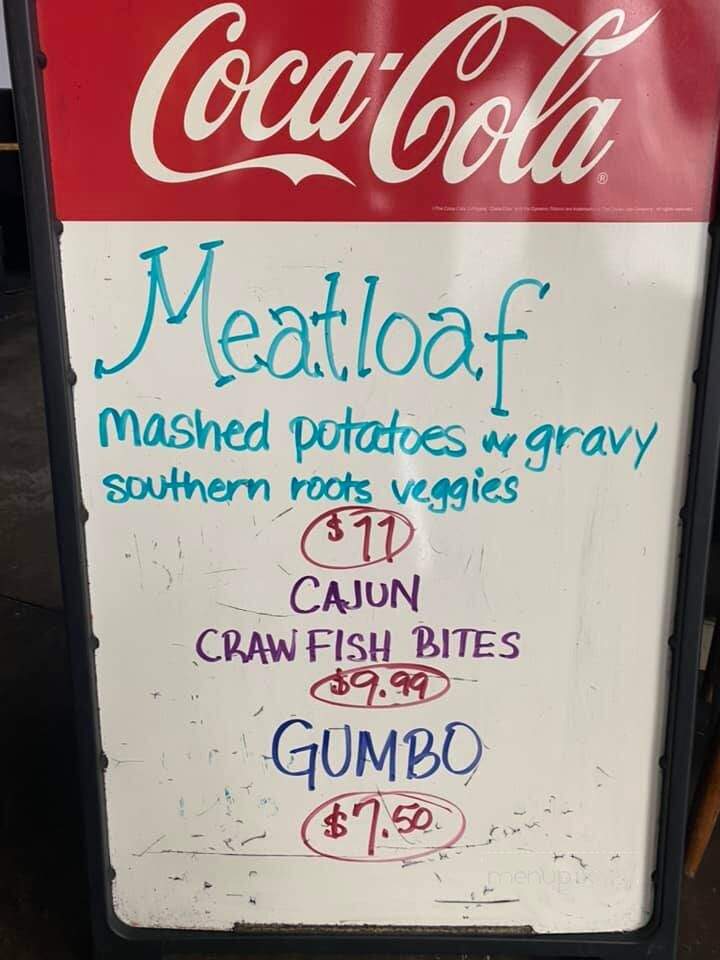 Coca-Cola
®
Meatloaf
mashed potatoes w/ gravy
southern roots veggies
$11
CAJUN
CRAWFISH BITES
$9.99
GUMBO
$7.50
menupix